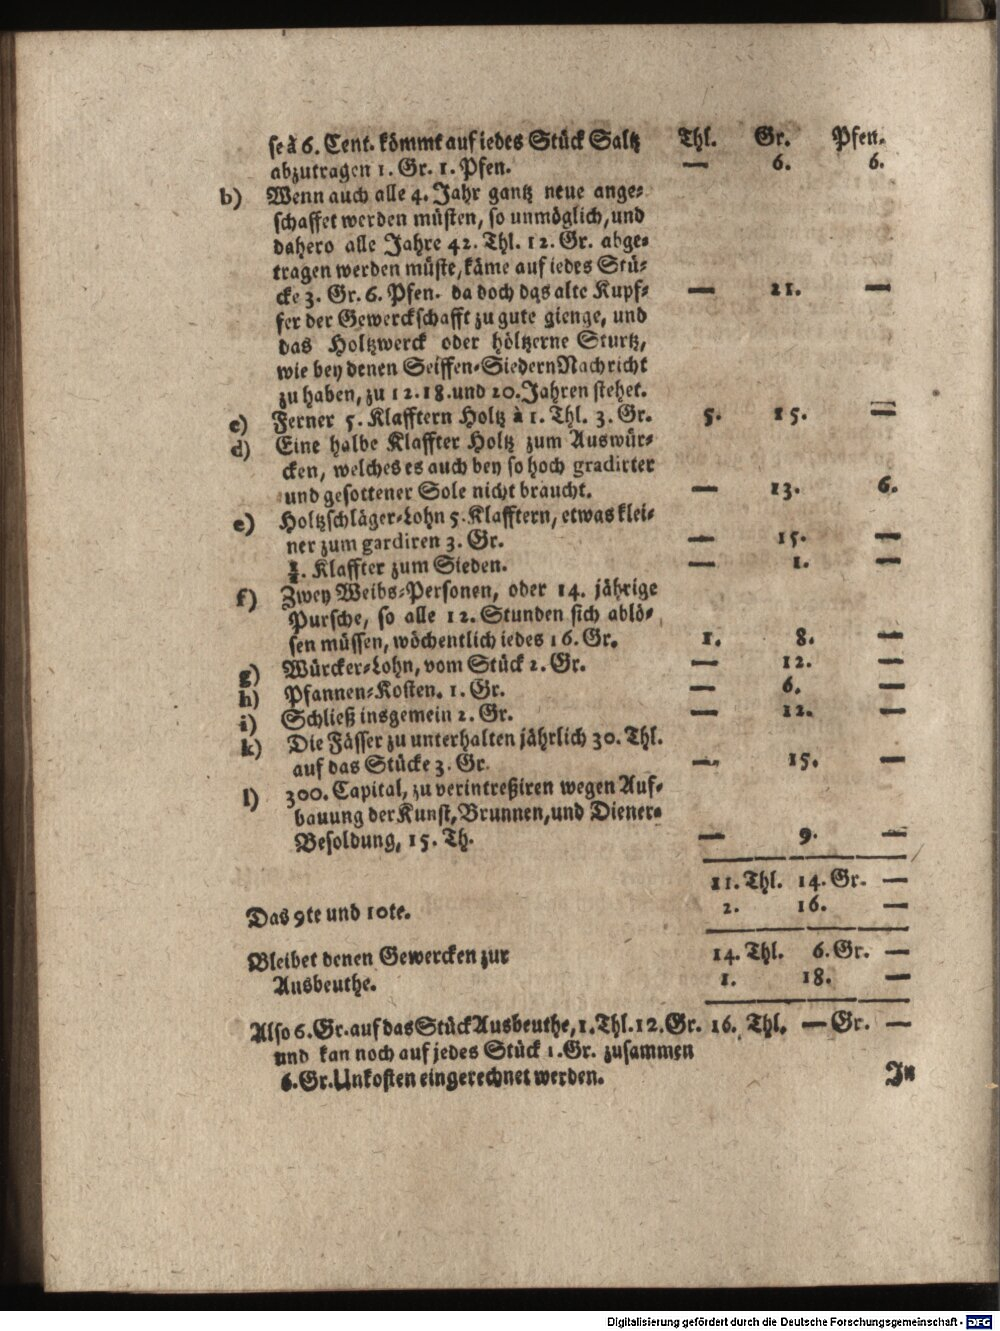 se à 6. Cent. kömmt auf iedes Stück Saltz Thl. Gr. Pfen.
abzutragen 1. Gr. 1. Pfen. — 6. 6.
b) Wenn auch alle 4. Jahr gantz neue ange-
schaffet werden müsten, so unmöglich, und
dahero alle Jahre 42. Thl. 12. Gr. abge-
tragen werden müste, käme auf iedes Stü-
cke 3. Gr. 6. Pfen. da doch das alte Kupf- — 21. —
fer der Gewerckschafft zu gute gienge, und
das Holtzwerck oder höltzerne Sturtz,
wie bey denen Seiffen-Siedern Nachricht
zu haben, zu 12. 18. und 20. Jahren stehet.
c) Ferner 5. Klafftern Holtz à 1. Thl. 3. Gr. 5. 15. —
d) Eine halbe Klaffter Holtz zum Auswür-
cken, welches es auch bey so hoch gradirter
und gesottener Sole nicht braucht. — 13. 6.
e) Holtzschläger-Lohn 5. Klafftern, etwas klei-
ner zum gardiren 3. Gr. — 15. —
½. Klaffter zum Sieden. — 1. —
f) Zwey Weibs-Personen, oder 14. jährige
Pursche, so alle 12. Stunden sich ablö-
sen müssen, wöchentlich iedes 16. Gr. 1. 8. —
g) Würcker-Lohn, vom Stück 2. Gr. — 12. —
h) Pfannen-Kosten. 1. Gr. — 6. —
i) Schließ insgemein 2. Gr. — 12. —
k) Die Fässer zu unterhalten jährlich 30. Thl.
auf das Stücke 3. Gr. — 15. —
l) 300. Capital, zu verintreßiren wegen Auf-
bauung der Kunst, Brunnen, und Diener-
Besoldung, 15. Th. — 9. —
11. Thl. 14. Gr. —
Das 9te und 10te. 2. 16. —
Bleibet denen Gewercken zur 14. Thl. 6. Gr. —
Ausbeuthe. 1. 18. —
Also 6. Gr. auf das Stück Ausbeuthe, 1. Thl. 12. Gr. 16. Thl. — Gr. —
und kan noch auf jedes Stück 1. Gr. zusammen
6. Gr. Unkosten eingerechnet werden.
In
Digitalisierung gefördert durch die Deutsche Forschungsgemeinschaft - DFG